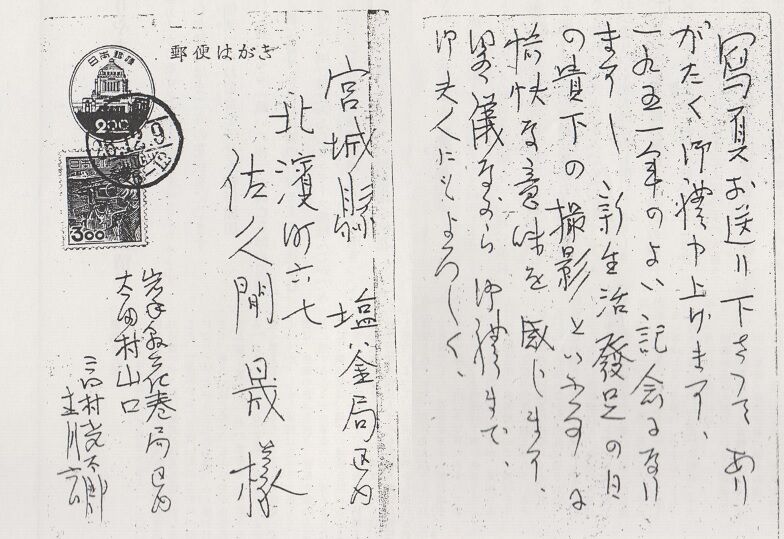 郵便はがき
日本郵便
200
3.00
宮城縣 塩釜局区内
北濱町六七
佐久間晟様
岩手縣花巻局区内
太田村山口
高村光太郎
寫真お送り下さつてあり
がたく御禮申上げます、
一九五一年のよい記念になり
ますし 新生活發足の日
の貴下の撮影といふ事に
愉快な意味を感じます、
略儀ながら御禮まで、
御夫人にもよろしく、